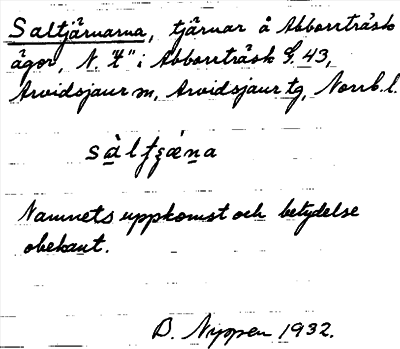 Saltjärnarna, tjärnar å Abborrträsk
ägor, N. "t" i Abborrträsk S. 43,
Arvidsjaur sn, Arvidsjaur tg, Norrb. l.
Namnets uppkomst och betydelse
obekant.
B. Nyppen 1932.